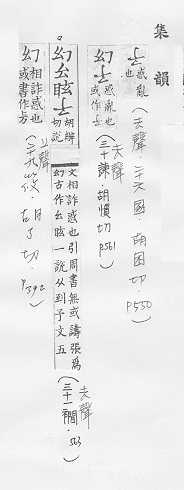 集韻
𠄔 惑亂
也
(去聲.二十六圂.胡困切.P550)
幻𠄔 惑亂也
或作𠄔
(去聲
三十諫.胡慣切 P561)
幻 眩𠄔 胡辨
切說
文相詐惑也引周書無或譸張爲
幻古作 眩一說从到予文五
(去聲
三十一襇.563)
幻 相詐惑也
或書作
(上聲
二十九筱.胡了切.P392)